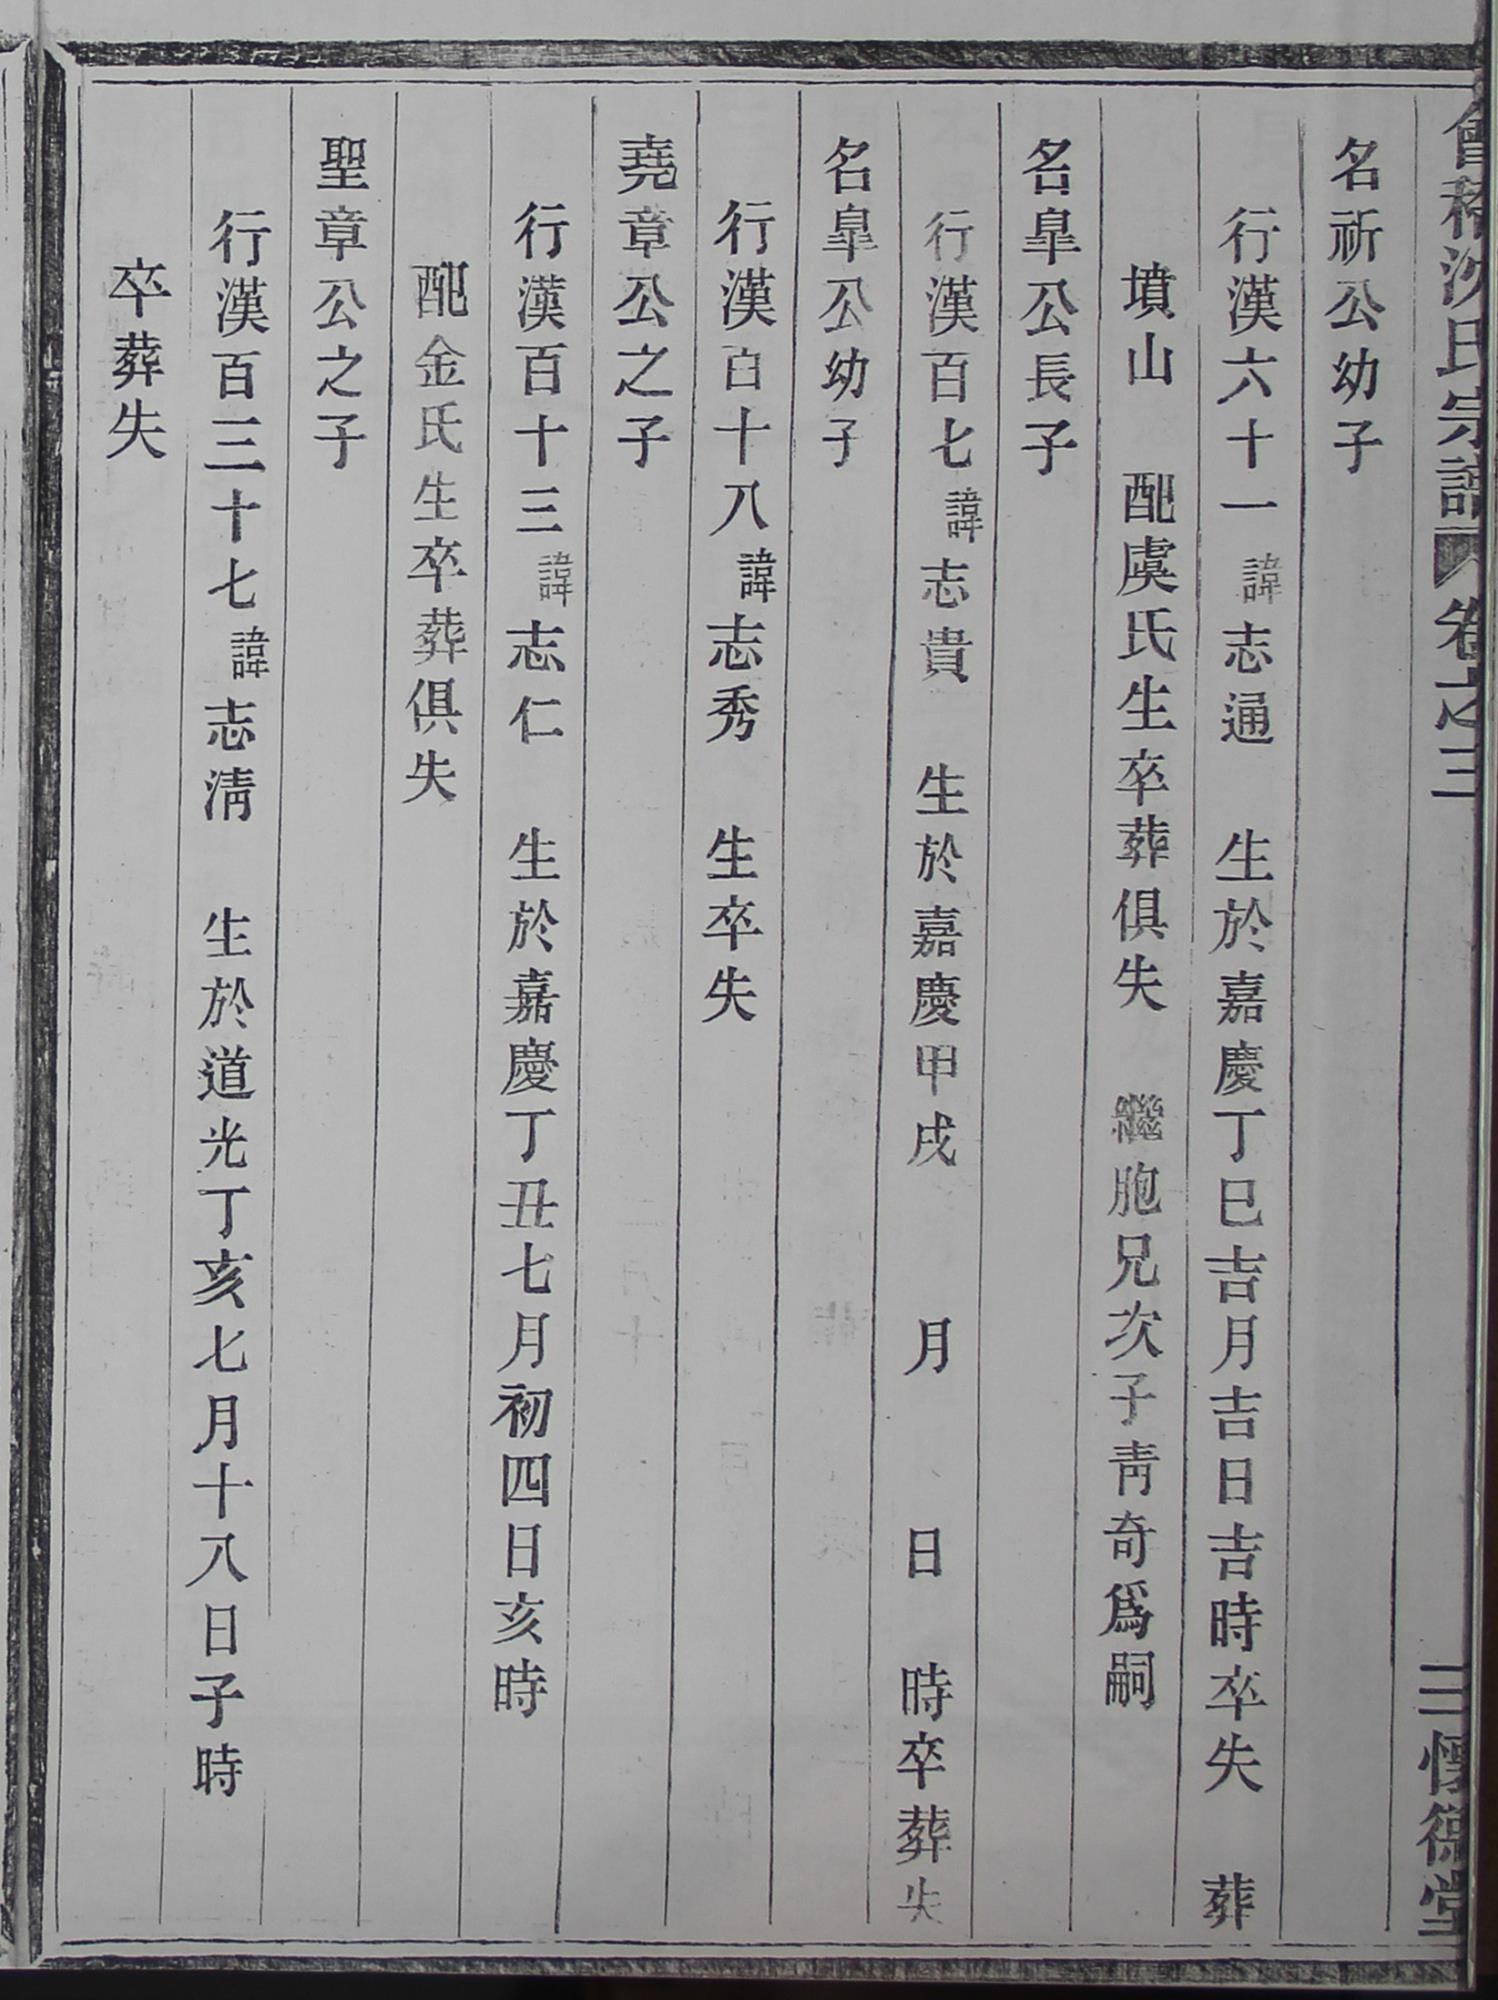 會稽沈氏宗譜 卷之三 三 懷德堂
名祈公幼子
行漢六十一諱志通 生於嘉慶丁巳吉月吉日吉時卒失 葬
墳山 配虞氏生卒葬俱失 繼胞兄次子靑奇爲嗣
名臯公長子
行漢百七諱志貴 生於嘉慶甲戌 月 日 時卒葬失
名臯公幼子
行漢百十八諱志秀 生卒失
堯章公之子
行漢百十三諱志仁 生於嘉慶丁丑七月初四日亥時
配金氏生卒葬俱失
聖章公之子
行漢百三十七諱志淸 生於道光丁亥七月十八日子時
卒葬失